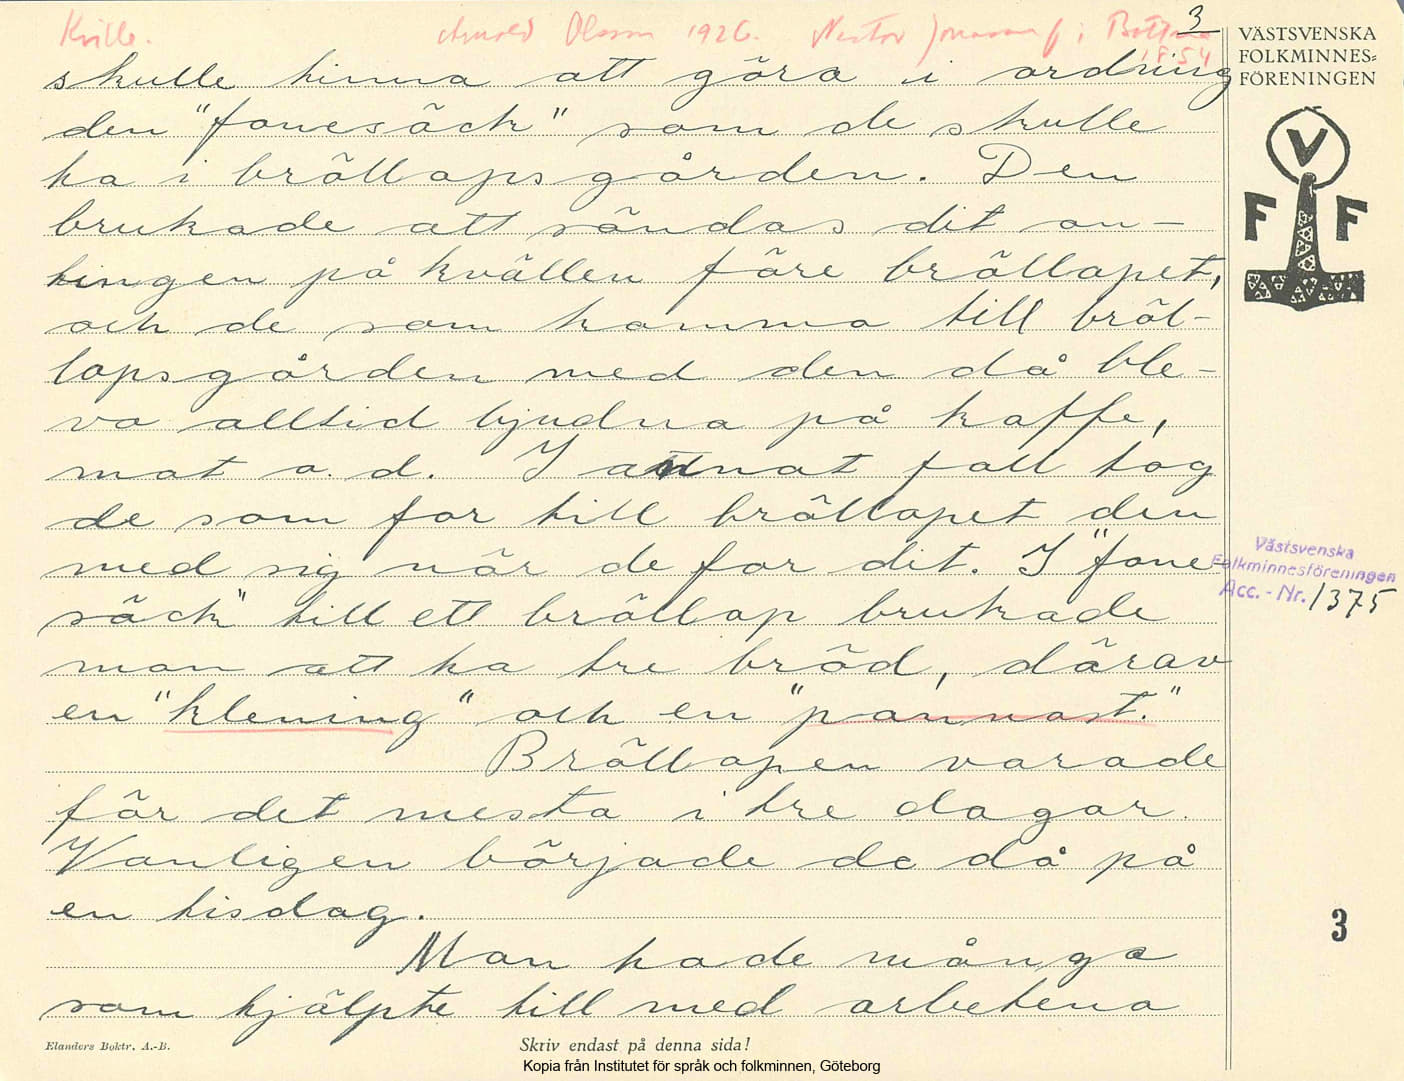 Kville. Arnold Olsson 1926. Nestor Jonasson f. i Bottna 1854
3
VÄSTSVENSKA
FOLKMINNES=
FÖRENINGEN
V
F F
skulle hinna att göra i ordning
den "fonesäck" som de skulle
ha i bröllopsgården. Den
brukade att sändas dit an-
tingen på kvällen före bröllopet,
och de som komma till bröl-
lopsgården med den då ble-
vo alltid bjudna på kaffe,
mat o. d. I annat fall tog
de som for till bröllopet den
med sig när de for dit. I "fone-
säck" till ett bröllop brukade
man att ha tre bröd, därav
en "klening" och en "pannost."
Bröllopen varade
för det mesta i tre dagar.
Vanligen började de då på
en tisdag.
Man hade många
som hjälpte till med arbetena
Västsvenska
Folkminnesföreningen
Acc. - Nr. 1375
3
Elanders Boktr. A.-B.
Skriv endast på denna sida!
Kopia från Institutet för språk och folkminnen, Göteborg